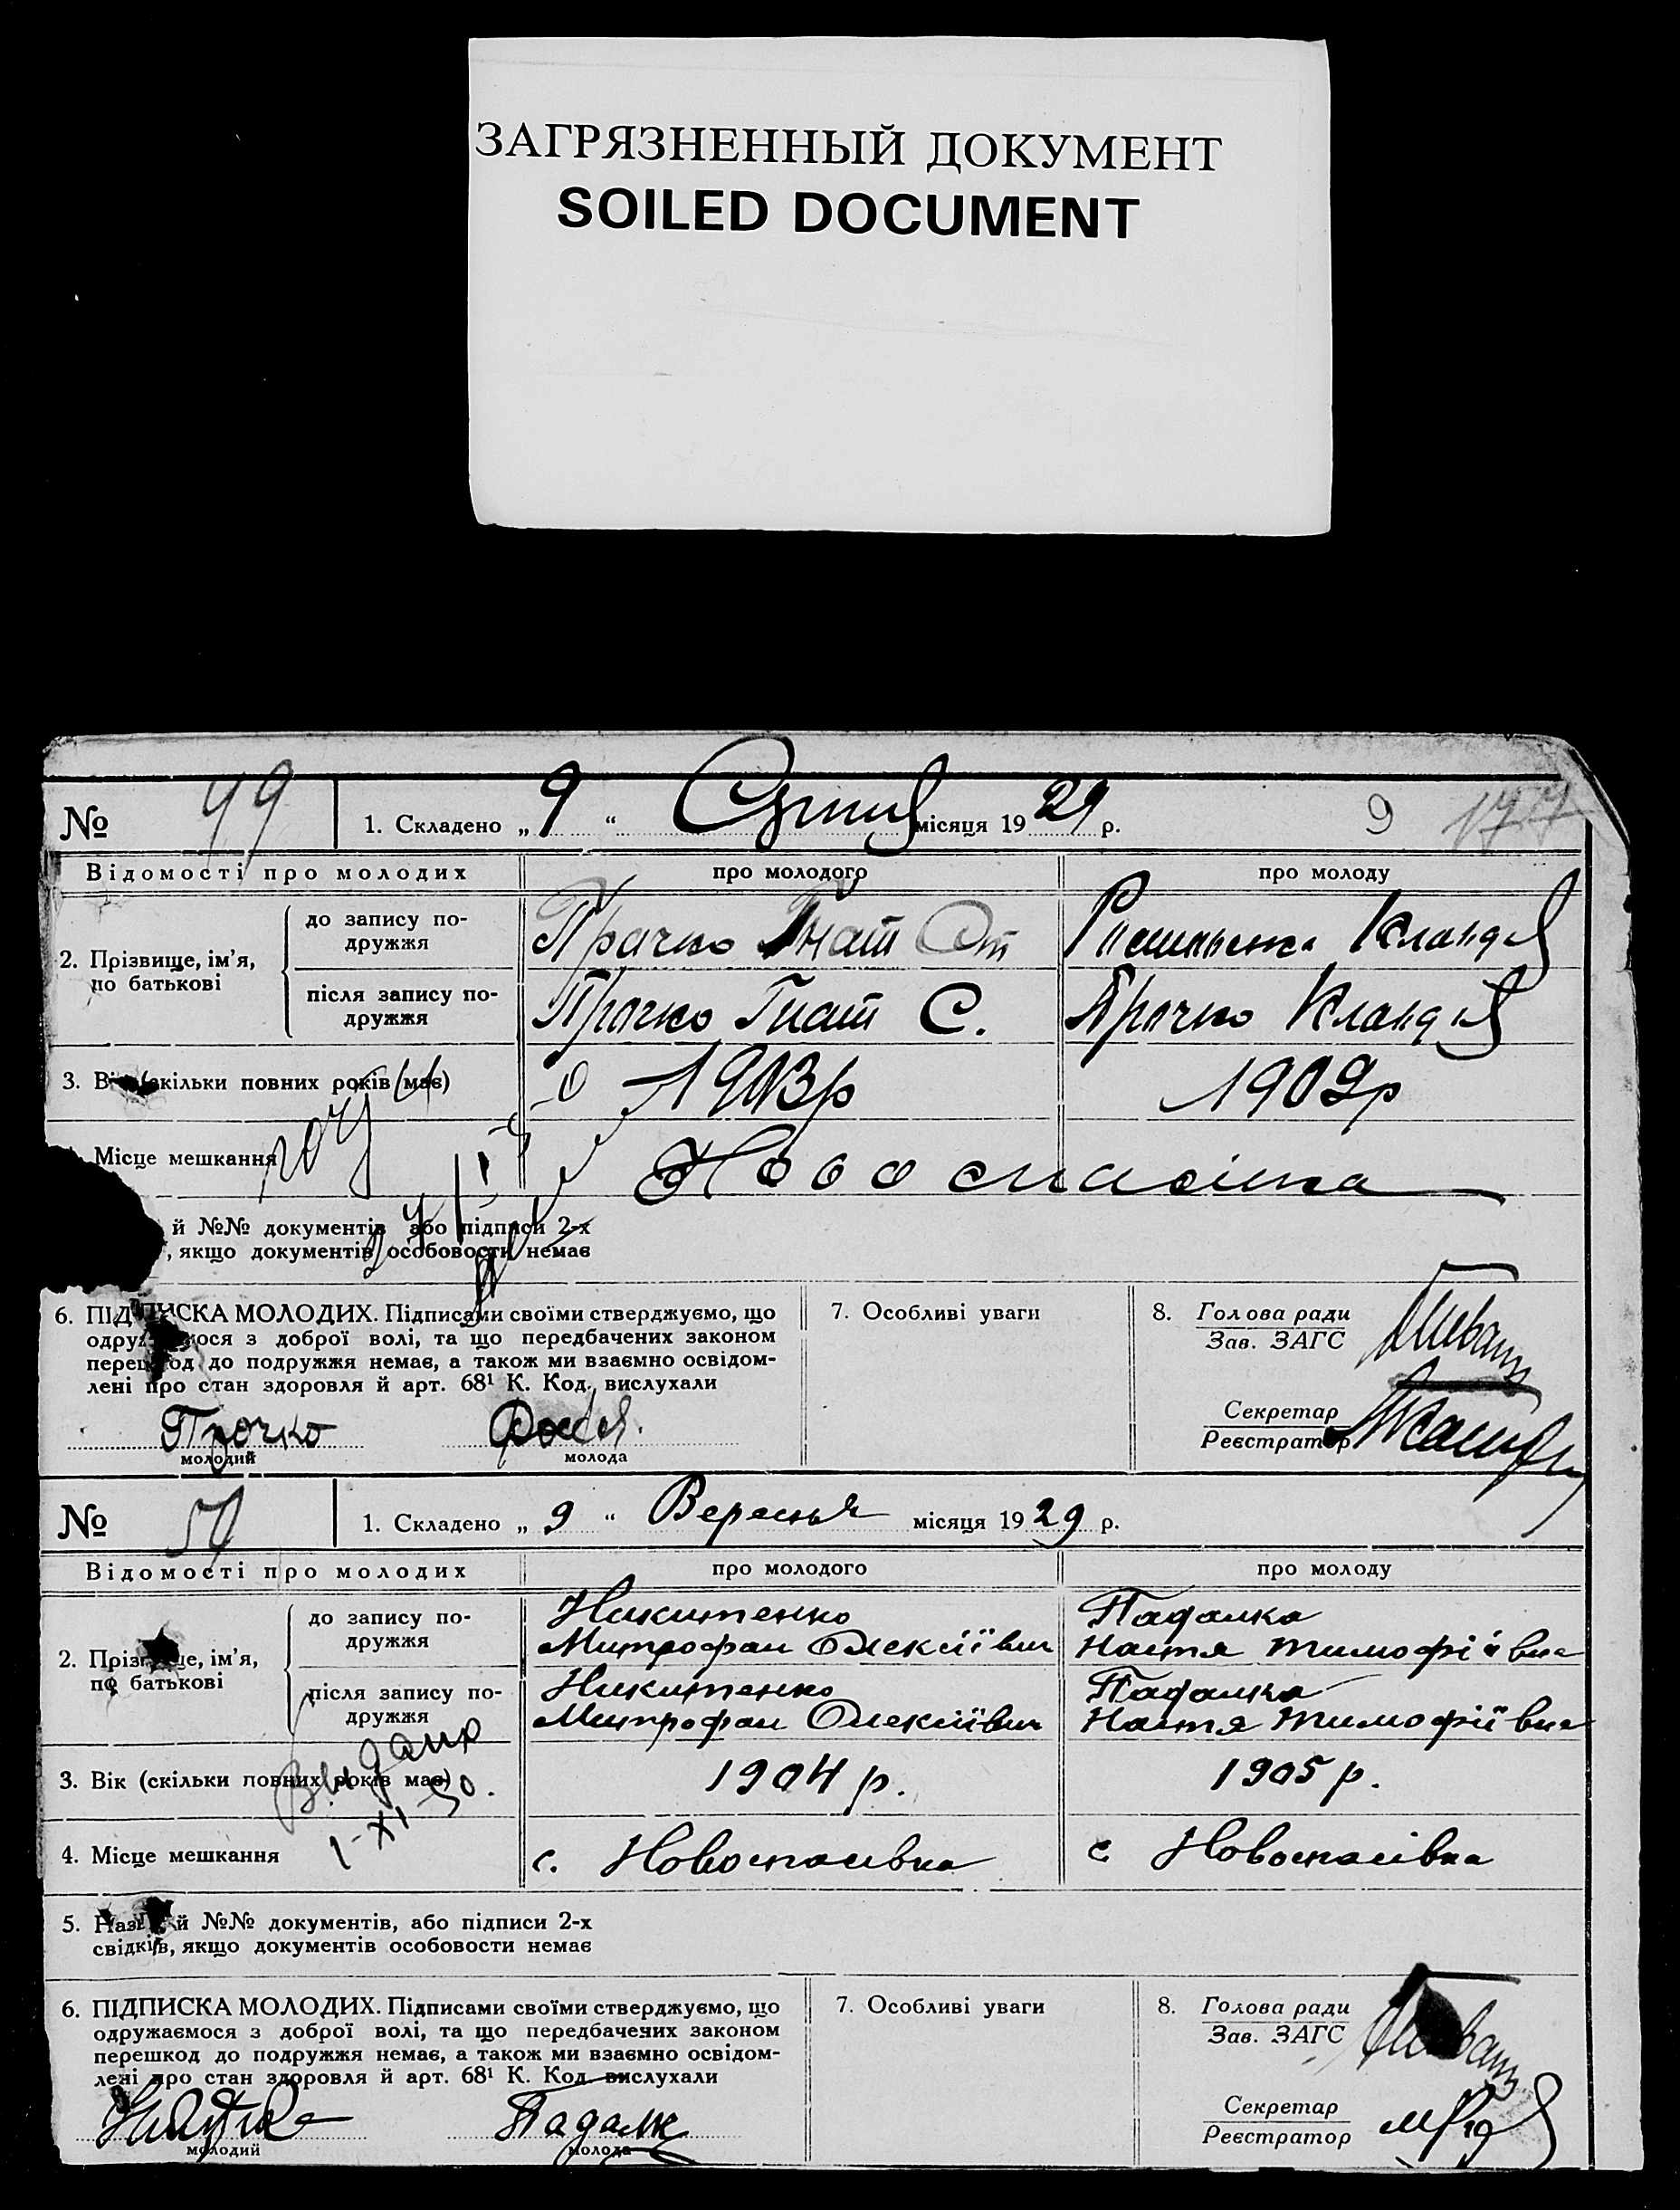 ЗАГРЯЗНЕННЫЙ ДОКУМЕНТ
SOILED DOCUMENT
№ 49 1. Складено „ 9 “ місяця 19 29 р. 9 177
Відомості про молодих про молодого про молоду
2. Прізвище, ім’я, по батькові
до запису подружжя Прачко Гнат
після запису подружжя Прачко Гнат С. Прачко Клавдія
3. (скільки повних років має) 1903р 1902р
Місце мешкання Новоспасівка
й №№ документів або підписи 2-х
, якщо документів особовости немає
6. ПІДПИСКА МОЛОДИХ. Підписами своїми стверджуємо, що
одружаємося з доброї волі, та що передбачених законом
перешкод до подружжя немає, а також ми взаємно освідом-
лені про стан здоровля й арт. 68¹ К. Код. вислухали
Прочко
молодий молода
7. Особливі уваги
8. Голова ради
Зав. ЗАГС
Секретар
Реєстратор
№ 50 1. Складено „ 9 “ Вересня місяця 19 29 р.
Відомості про молодих про молодого про молоду
2. Прізвище, ім’я,
по батькові
до запису по-
дружжя
Никитенко
Митрофан Олексіївич
Падалка
Настя Тимофіївна
після запису по-
дружжя
Никитенко
Митрофан Олексіївич
Падалка
Настя Тимофіївна
Видано
1-XI-50.
3. Вік (скільки повних років має) 1904 р. 1905 р.
4. Місце мешкання с. Новоспасівка с Новоспасівка
5. Назви й №№ документів, або підписи 2-х
свідків, якщо документів особовости немає
6. ПІДПИСКА МОЛОДИХ. Підписами своїми стверджуємо, що
одружаємося з доброї волі, та що передбачених законом
перешкод до подружжя немає, а також ми взаємно освідом-
лені про стан здоровля й арт. 68¹ К. Код. вислухали
Падалк
молодий молода
7. Особливі уваги
8. Голова ради
Зав. ЗАГС
Секретар
Реєстратор